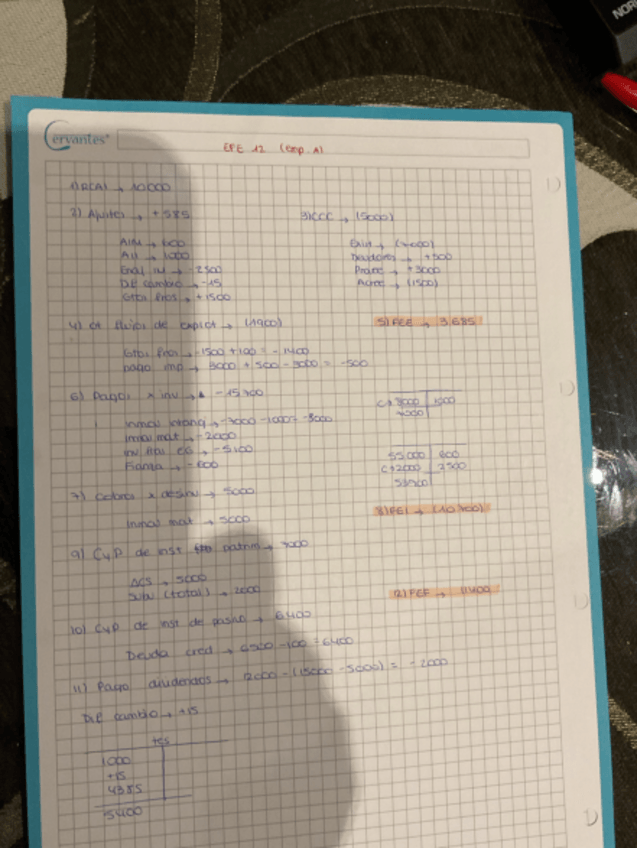 Cervantes
EFE 12 (Emp. A)
1) RCAI → 10000
2) Ajustes → +585
3) CCC → (5000)
AIM → 600
AII → 1000
Enaj IM → -2500
Dif cambio → -15
Gtos finos → +1500
Exist → (7000)
Deudores → +500
Proved → +3000
Acreed → (1500)
4) Ot flujos de explot → (1900)
5) FEE → 3685
Gtos finos → -1500 + 100 = -1400
pago imp → 3000 + 500 - 3000 = -500
6) Pagos x inv → -15700
Inmov intang → -7000 - 1000 = -8000
Inmov mat → -2000
Fianza → -600
C→ 8000 | 1000
7000
55000 | 600
C→ 2000 | 2500
7) Cobros x desinv → 5000
Inmov mat → 5000
8) FEI → (10700)
9) CyP de inst patrim → 7000
ACS → 5000
Subv (total) → 2000
12) FEF → 11400
10) CyP de inst de pasivo → 6400
Deuda cred → 6500 - 100 = 6400
11) Pago dividendos → 12000 - (15000 - 5000) = -2000
Dif cambio → +15
tes
1000
+15
4385
5400